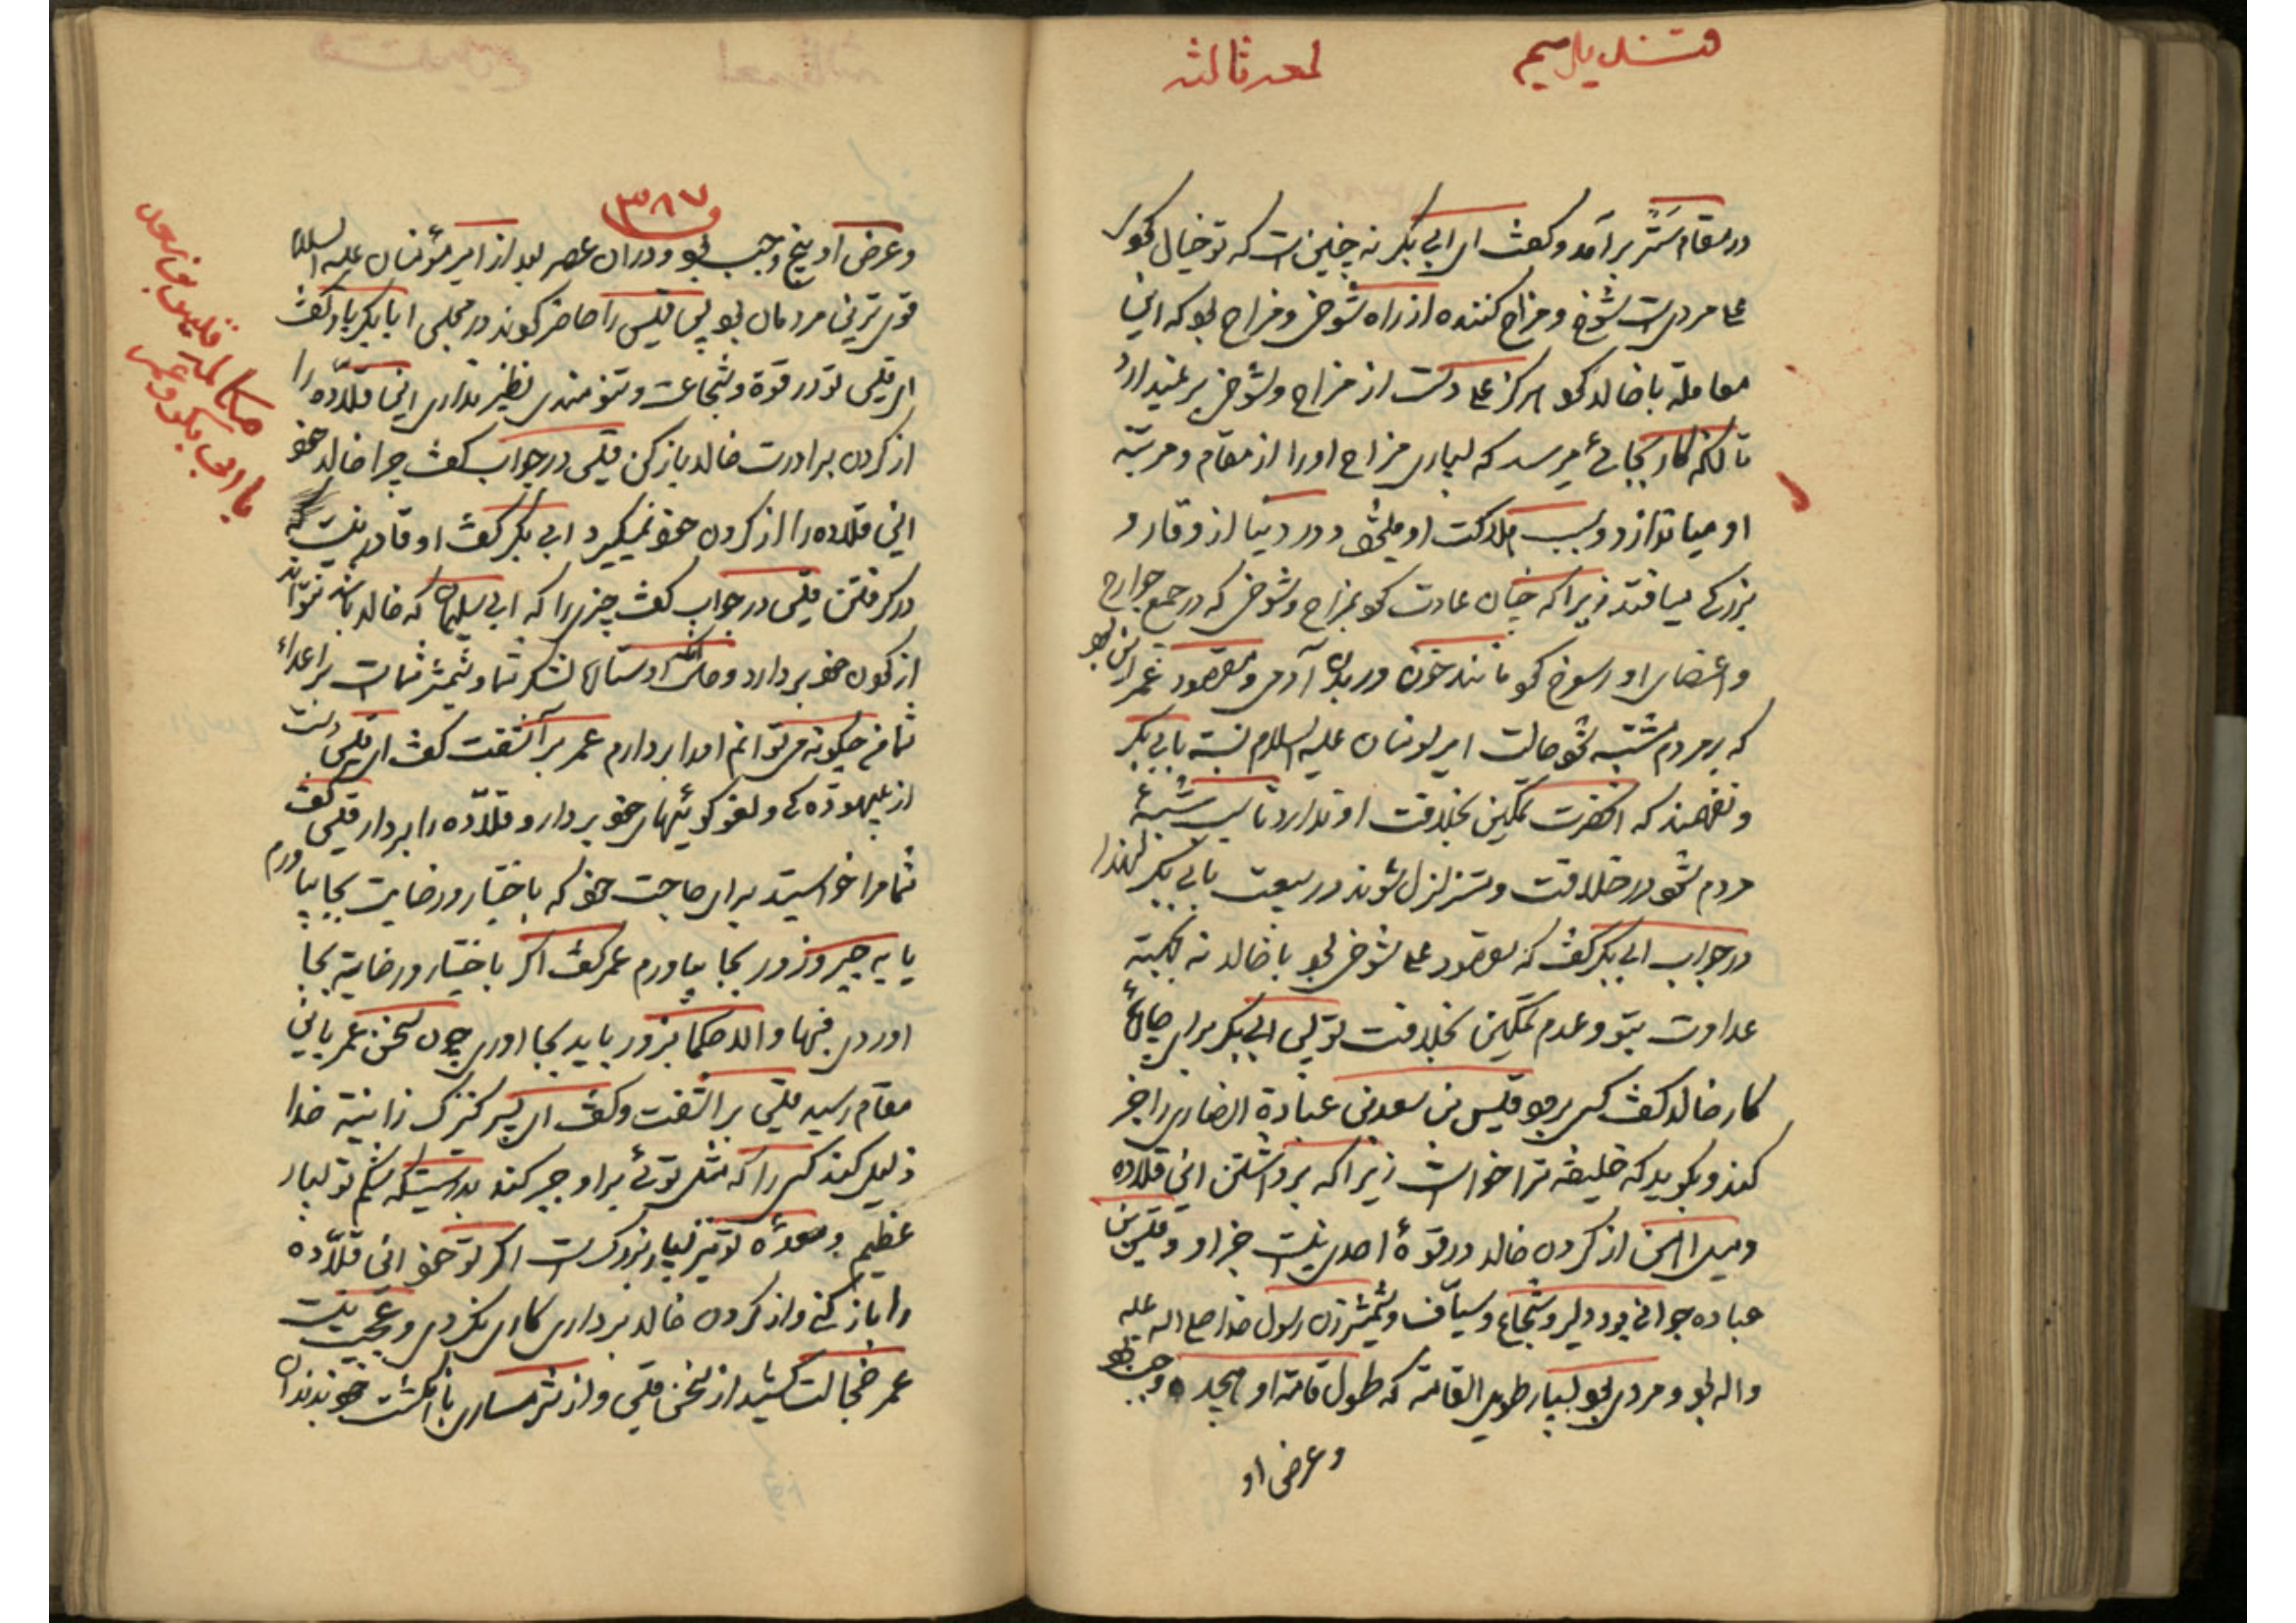 قندیل سیم
لمعه ثالثه
در مقام تستّر برآمد و گفت ای ابی بکر نه چنین است که تو خیال نمود
علی مردیست شوخ و مزاح کننده از راه شوخی و مزاح بود که این
معامله با خالد نمود هرگز علی دست از مزاح و شوخی بر نمیدارد
تا آنکه کار بجائی میرسد که بسیاری مزاح او را از مقام و مرتبه
او میاندازد و بسبب هلاکت او میشود و در دنیا از وقار و
بزرگی میافتد زیرا که چنان عادت نمود بمزاح و شوخی که در جمیع جوارح
و اعضای او رسوخ نمود مانند خون در بدن آدمی و مقصود عمر این بود
که بر مردم مشتبه شود حالت امیرمؤمنان علیه السلام نسبة بابی بکر
و نفهمند که آنحضرت تمکین بخلافت او ندارد تا سبب شبهۀ
مردم شود در خلافت و متزلزل شوند در بیعت بابی بکر لهذا
در جواب ابی بکر گفت که مقصود علی شوخی بود با خالد نه بجهة
عداوت بتو و عدم تمکین بخلافت تو پس ابی بکر برای چارۀ
کار خالد گفت کسی برود قیس بن سعد بن عبادة انصاری را خبر
کند و بگوید که خلیفه ترا خواست زیرا که برداشتن این قلاده
و میل آهن از گردن خالد در قوۀ احدی نیست جز او و قیس بن
عباده جوانی بود دلیر و شجاع و سیّاف و شمشیرزن رسول خدا صلی الله علیه
و اله بود و مردی بود بسیار طویل القامه که طول قامة او هیجده وجب بود
و عرض او
۳۸۷
و عرض او پنج وجب بود و در ان عصر بعد از امیرمؤمنان علیه السلام
قوی ترین مردمان بود پس قیس را حاضر نمودند در مجلس ابابکر باو گفت
ای قیس تو در قوة و شجاعت و تنومندی نظیر نداری این قلّاده را
از گردن برادرت خالد باز کن قیس در جواب گفت چرا خالد خود
این قلاده را از گردن خود نمیگیرد ابی بکر گفت او قادر نیست
در گرفتن قیس در جواب گفت چیزی را که ابی سلیمان که خالد باشد نتواند
از گردن خود بردارد و حال آنکه او سالار لشکر شما و شمشیر شماست بر اعداء
شما من چگونه میتوانم انرا بردارم عمر برآشفت گفت ای قیس دست
از بیهوده گی و لغو گوئیهای خود بردار و قلّاده را بردار قیس گفت
شما مرا خواستید برای حاجت خود که باختیار و رضایت بجا بیاورم
یا به جبر و زور بجا بیاورم عمر گفت اگر باختیار و رضایة بجا
اوردی فبها و الا حکما بزور باید بجا اوری چون سخن عمر باین
مقام رسید قیس برآشفت و گفت ای پسر کنیزک زانیة خدا
ذلیل کند کسی را که مثل توئی بر او جبر کند بدرستیکه شکم تو بسیار
عظیم و معدۀ تو نیز بسیار بزرگ است اگر تو خود این قلّاده
را باز کنی و از گردن خالد برداری کاری نکردی و عجب نیست
عمر خجالت کشید از سخن قیس و از شرمساری با انگشت خود بدندان
مکالمه قیس بن سعد
با ابی بکر و عمر